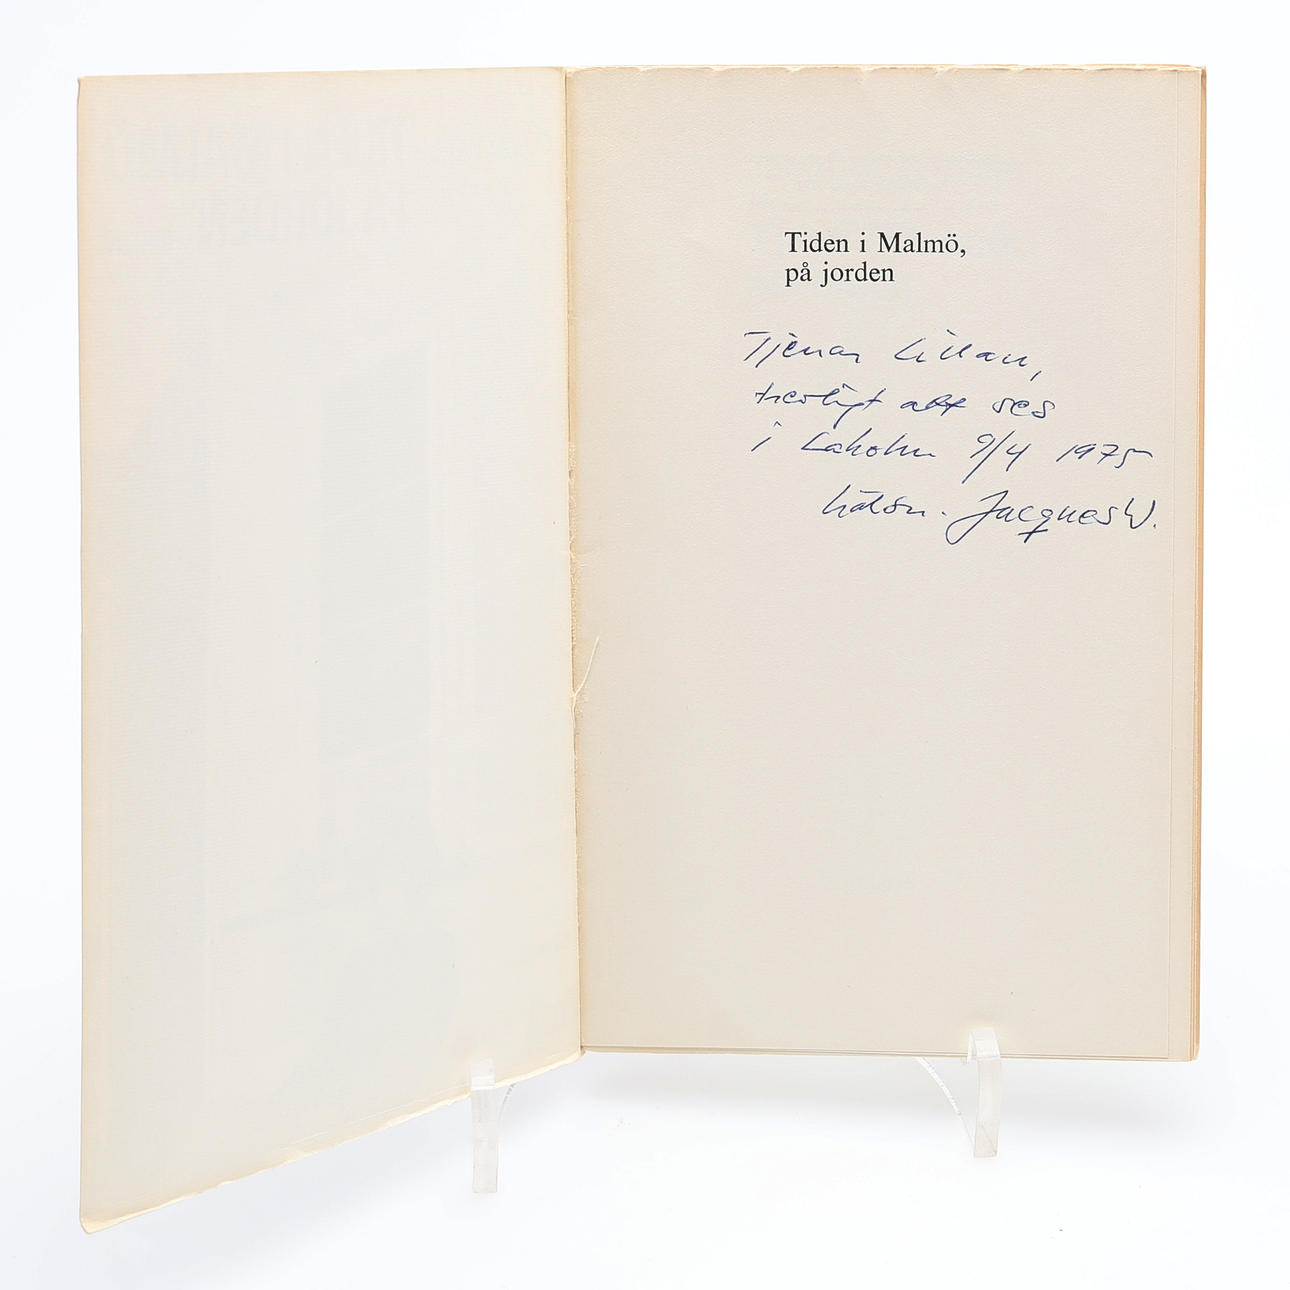 Tiden i Malmö,
på jorden
Tjenar Lillan,
trevligt att ses
i Laholm 9/4 1975
hälsn. Jacques W.